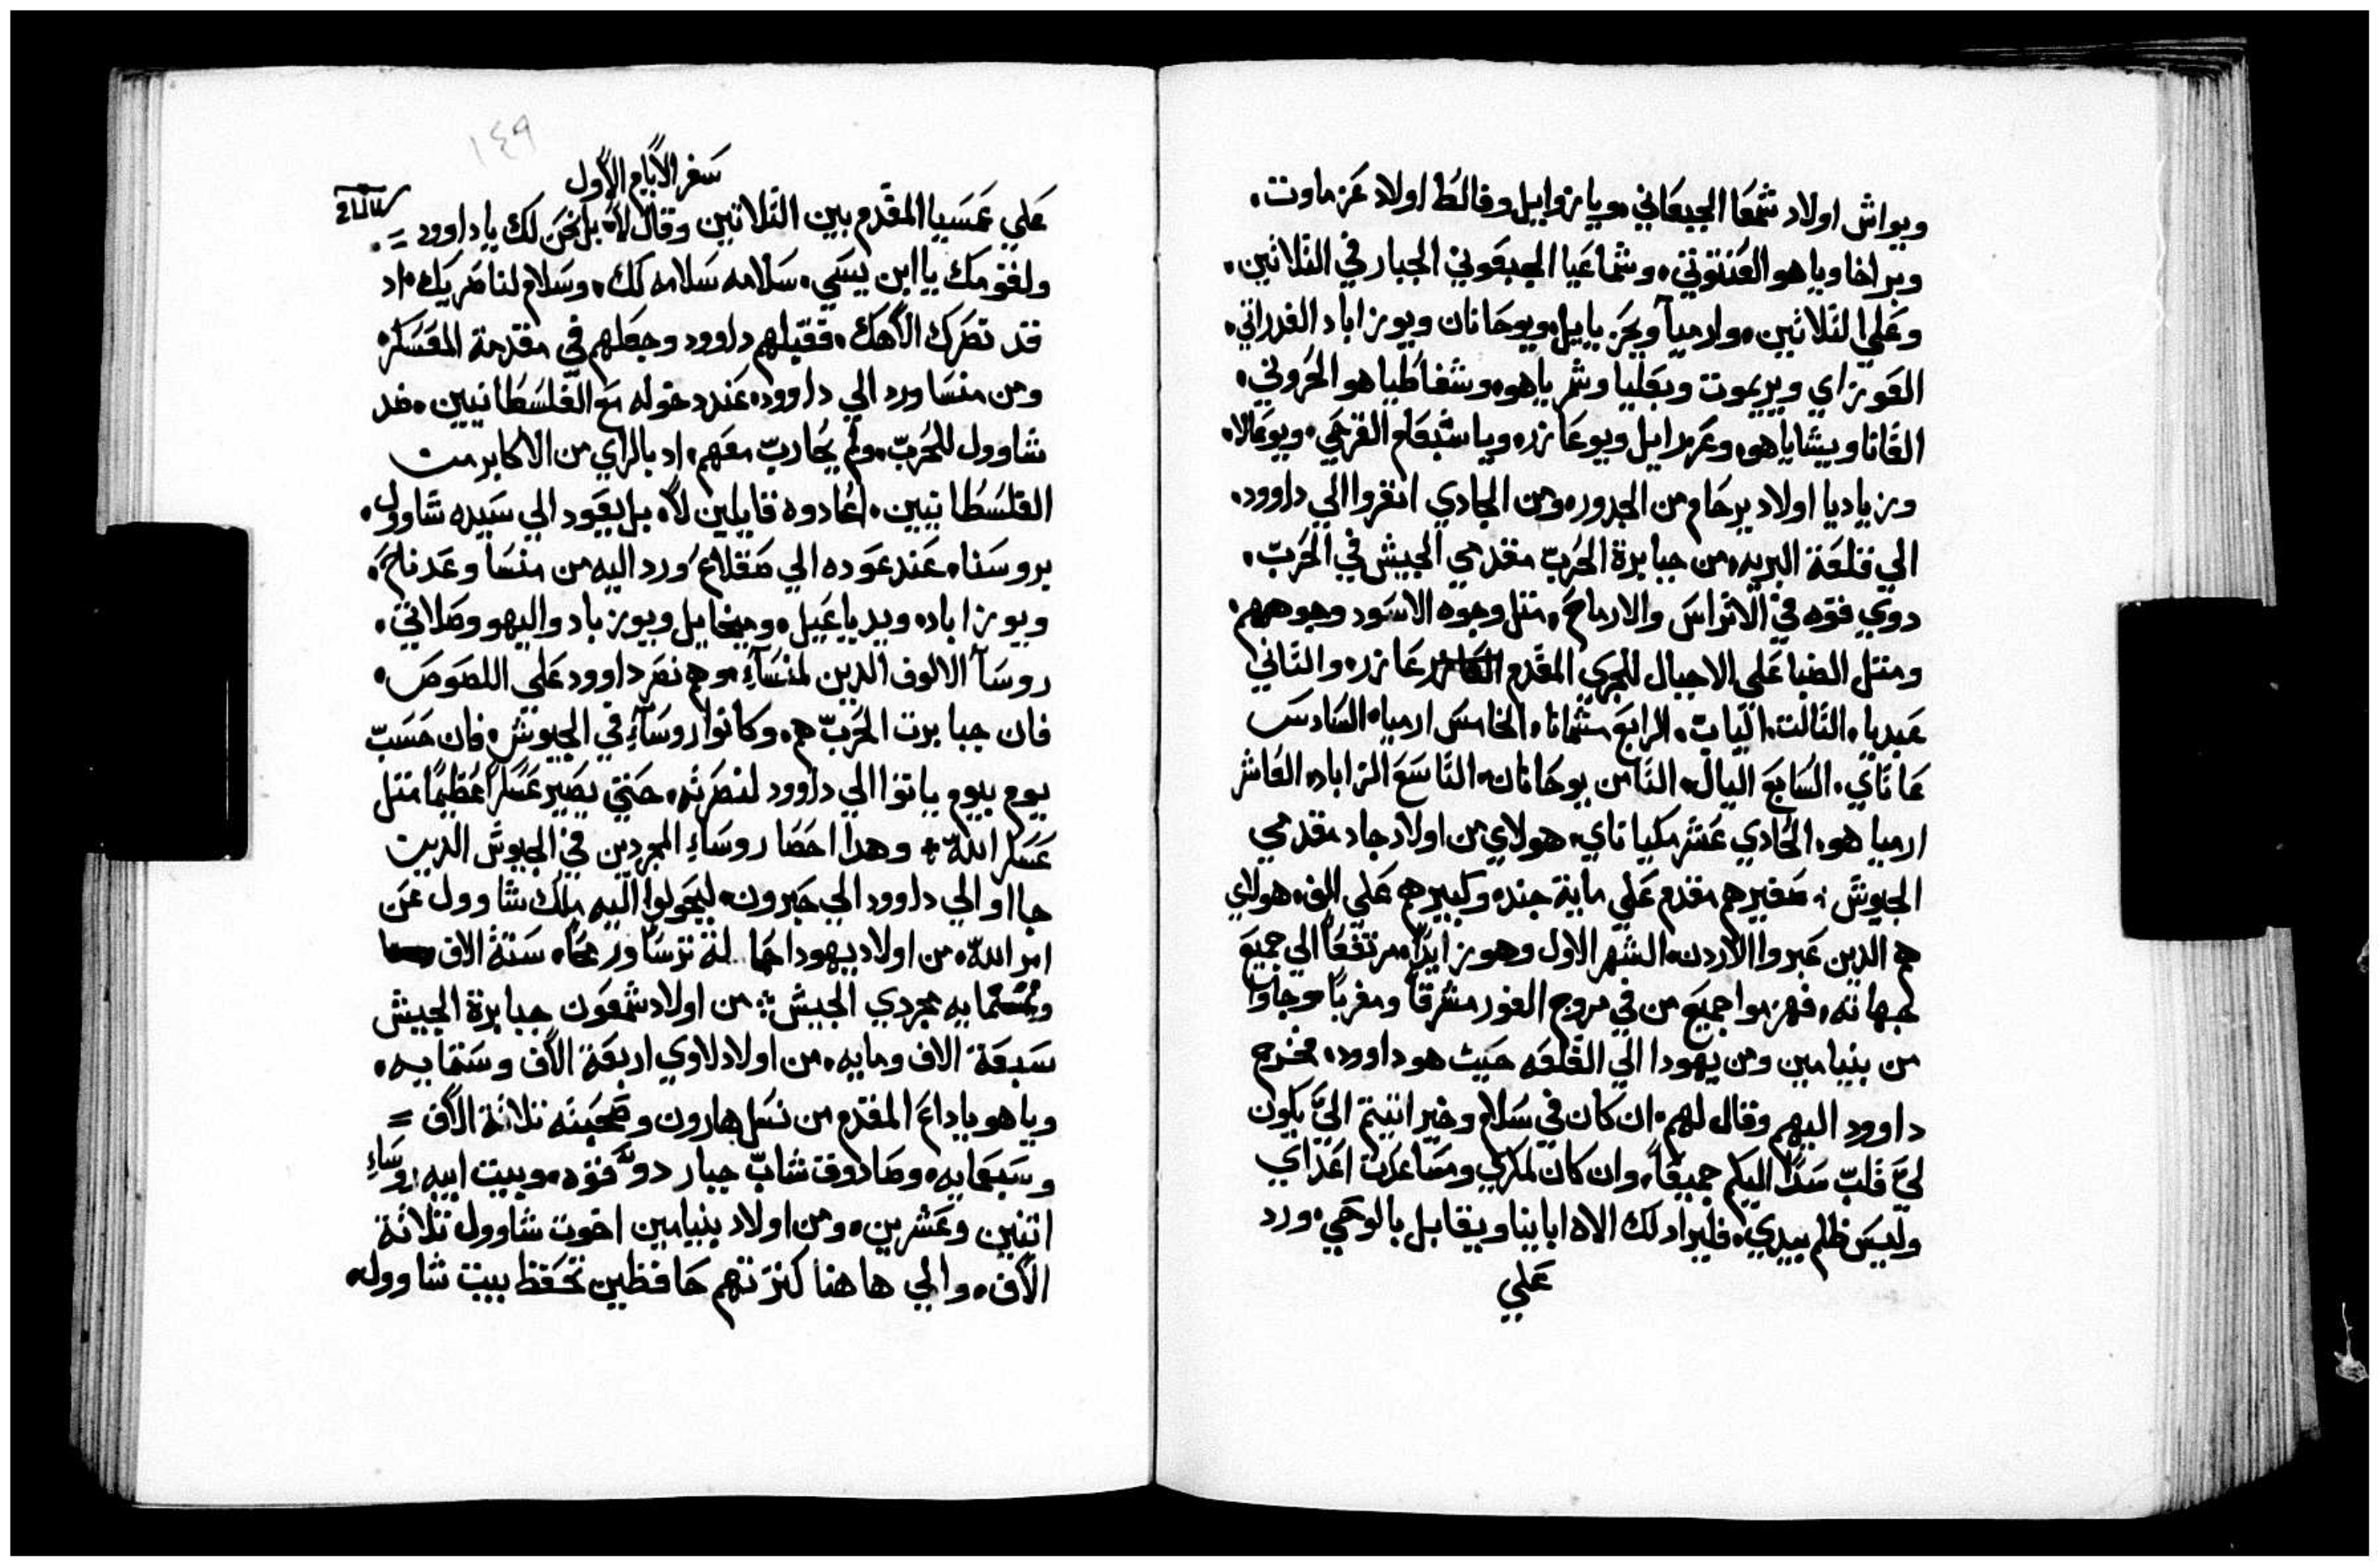 ويواش اولاد شمعا الجبعاني، ويا يزواييل وفالط اولاد عزماوت،
وبراخا وياهو العنتوتي، وشماعيا الجبعوني الجبار في الثلاثين،
وعلي الثلاثين، وارميا ويحزياييل ويوحانان ويوزاباد الغدراتي،
العوزاي ويريموت وبعليا وشمرياهو، وشفاطياهو الحروني،
القانا ويشاياهو، وعزرايل ويوعازر، وياشبعام القرحي، ويوعالا،
وزباديا اولاد يرحام من الجدور، ومن الجادي انفروا الي داوود،
الي قلعة البريه، من جبابرة الحرب مقدمي الجيش في الحرب،
دوي قوه في الاتراس والارماح، مثل وجوه الاسود وجوههم،
ومثل الضبا علي الاجبال للجري المقدم عازر، والثاني
عبديا، الثالث الياب، الرابع مشمانا، والخامس ارميا، السادس
عاتاي، السابع اليال، الثامن يوحانان، التاسع الزاباد، العاشر
ارمياهو، الحادي عشر مكباناي، هولاي من اولاد جاد مقدمي
الجيوش، صغيرهم مقدم علي ماية جند، وكبيرهم علي الف، هولاي
هم الدين عبروا الاردن، الشهر الاول وهو زايدا، مرتفعا الي جميع
جهاته، فهزموا جميع من في مروج الغور مشرقا ومغربا، وجاوا
من بنيامين ومن يهودا الي القلعه حيث هو داوود، فخرج
داوود اليهم وقال لهم، ان كان في سلام وخير اتيتم الي يكون
لي قلب سدا اليكم جميعا، وان كان لمكري ومساعدت اعداي
وليس ظلم بيدي، فليراد لك الاه ابابنا ويقابل بالوحي، ورد
علي
١٤٩
سفر الايام الاول
علي عمسيا المقدم بين الثلاثين وقال لا، بل نحن لك يا داوود =
ولقومك يا ابن يسي، سلامه سلامه لك، وسلام لناصريك، اد
قد نصرك الاهك، فقبلهم داوود وجعلهم في مقدمة العسكر،
ومن منسا ورد الي داوود، عند دخوله مع الفلسطانيين، ضد
شاوول للحرب، ولم يحارب معهم، اد بالراي من الاكابر من
الفلسطانيين، اعادوه قايلين لا، بل يعود الي سيده شاوول،
بروسنا، عند عوده الي صقلاع، ورد اليه من منسا وعدناح،
ويوزاباد، ويدياعييل، وميخاييل ويوزباد واليهو وصلاتي،
روسا الالوف الدين لمنسا، وهم نصر داوود علي اللصوص،
فان جبابرت الحرب هم، وكانوا روساء في الجيوش، فان حسب
يوم بيوم ياتوا الي داوود لنصرته، حتي يصير عسكرا عظيما مثل
عسكر الله، وهدا احصا روساء المجردين في الجيوش الدين
جااو الي داوود الي حبرون، ليحولوا اليه ملك شاوول عن
امر الله، من اولاد يهودا حمالة ترسا ورمحا، ستة الاف
وثمنمايه مجردي الجيش، من اولاد شمعون جبابرة الجيش
سبعة الاف ومايه، من اولاد لاوي اربعة الاف وستمايه،
وياهو ياداع المقدم من نسل هارون وصحبته ثلاثة الاف =
وسبعمايه، وصادوق شاب جبار دو قوه، وبيت ابيه روساء
اتنين وعشرين، ومن اولاد بنيامين اخوت شاوول ثلاثة
الاف، والي هاهنا كثرتهم حافظين تحفظ بيت شاوول،